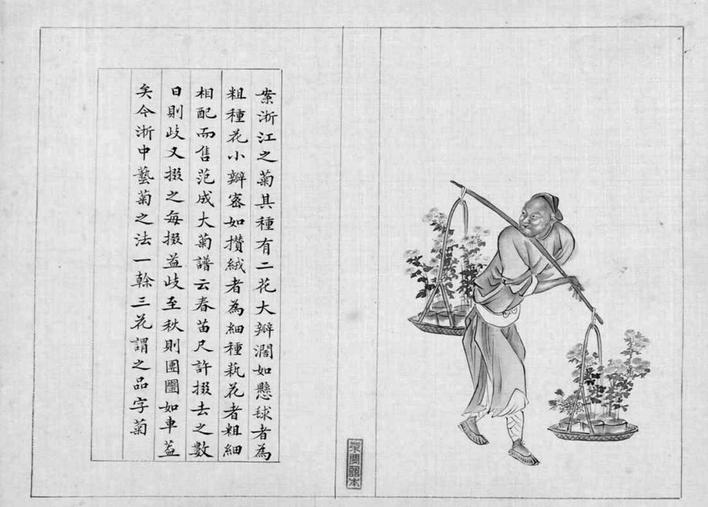 案浙江之菊其種有二花大瓣濶如懸球者為
粗種花小瓣密如攢絨者為細種蓺花者粗細
相配而售范成大菊譜云春苗尺許掇去之數
日則歧又掇之每掇益歧至秋則團圞如車蓋
矣今浙中藝菊之法一榦三花謂之品字菊